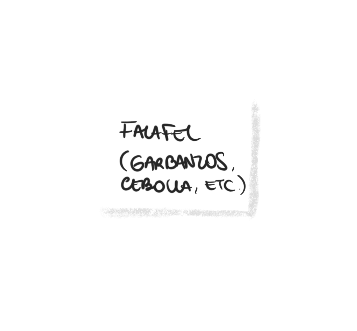 FALAFEL
(GARBANZOS,
CEBOLLA, ETC.)